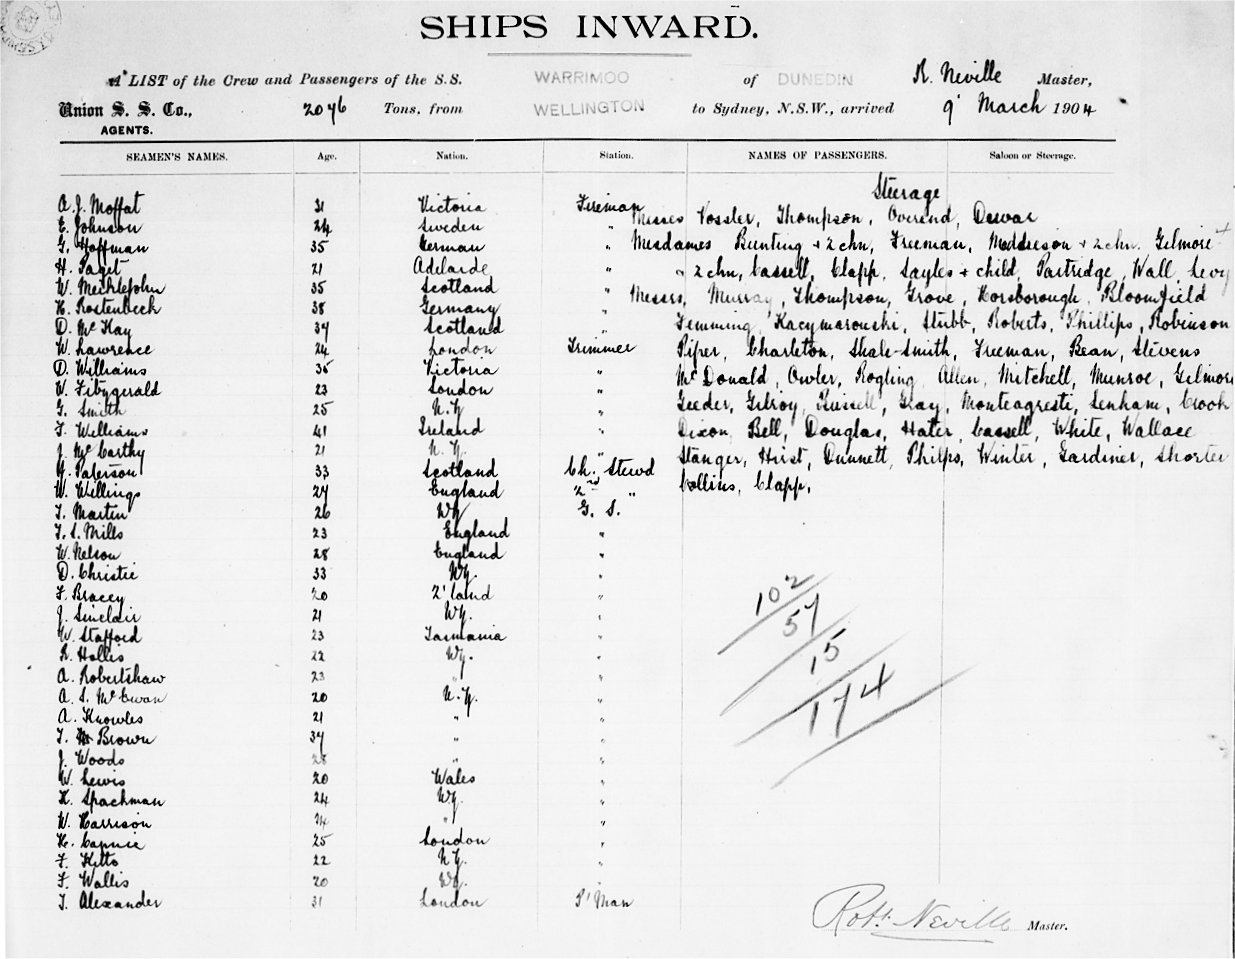 SHIPS INWARD.
A LIST of the Crew and Passengers of the S.S. WARRIMOO of DUNEDIN R. Neville Master,
Union S. S. Co., 2076 Tons, from WELLINGTON to Sydney, N.S.W., arrived 9' March 1904
AGENTS.
SEAMEN'S NAMES. Age. Nation. Station. NAMES OF PASSENGERS. Saloon or Steerage.
Steerage
A. J. Moffat 31 Victoria Fireman
Misses Vossler, Thompson, Overend, Dewar
E. Johnson 24 Sweden "
G. Hoffman 35 German " Mesdames Bunting + 2 chn, Freeman, + 2 chn. Gilmore +
H. Paget 21 Adelaide " 2 chn, Cassell, Clapp, Sayles + child, Partridge, Wall, Levy
W. Meiklejohn 35 Scotland " Messrs, Murray, Thompson, Grove, Horsborough, Bloomfield
H. Rostenbeck 38 Germany "
D. McKay 37 Scotland " Femming, Stubb, Roberts, Phillips, Robinson
W. Lawrence 24 London Trimmer Piper, Charleton, Shale-Smith, Freeman, Bean, Stevens
D. Williams 36 Victoria " McDonald, Owler, Rogling, Allen, Mitchell, Munroe, Gilmore
W. Fitzgerald 23 London "
G. Smith 25 N.Z. " Geeder, Gilroy, Russell, Gray, Monteagresti, Denham, Crook
T. Williams 41 Ireland " Dixon, Bell, Douglas, Hater, Cassell, White, Wallace
J. McCarthy 21 N.Z. " Stanger, Hirst, Dunnett, Philps, Winter, Gardiner, Shorter
G. Paterson 33 Scotland Ch. Stewd
W. Willings 27 England 2nd " Collins, Clapp,
T. Martin 26 Wg G. S.
T. S. Mills 23 England "
W. Nelson 28 England "
D. Christie 33 Wg. "
F. Bracey 20 Z'land "
J. Sinclair 21 Wg. "
W. Stafford 23 Tasmania "
R. Hollis 22 Wg. "
A. Robertshaw 23 " "
A. S. McEwan 20 N.Z. "
A. Knowles 21 " "
T. Brown 37 " "
J. Woods 28 " "
W. Lewis 20 Wales "
H. Spackman 24 Wg. "
W. Harrison 24 " "
H. Capnie 25 London "
F. Kitto 22 N.Z. "
F. Wallis 20 Wg. "
T. Alexander 31 London P'Man
102
57
15
174
Robt. Neville Master.